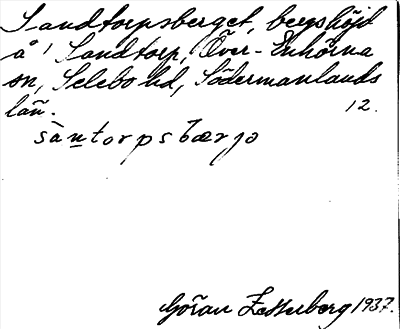 Sandtorpsberget, bergshöjd
å Sandtorp, Över-Enhörna
sn, Selebo hd, Södermanlands
län. 12.
sàntorpsbærjə
Göran Zetterberg 1937.